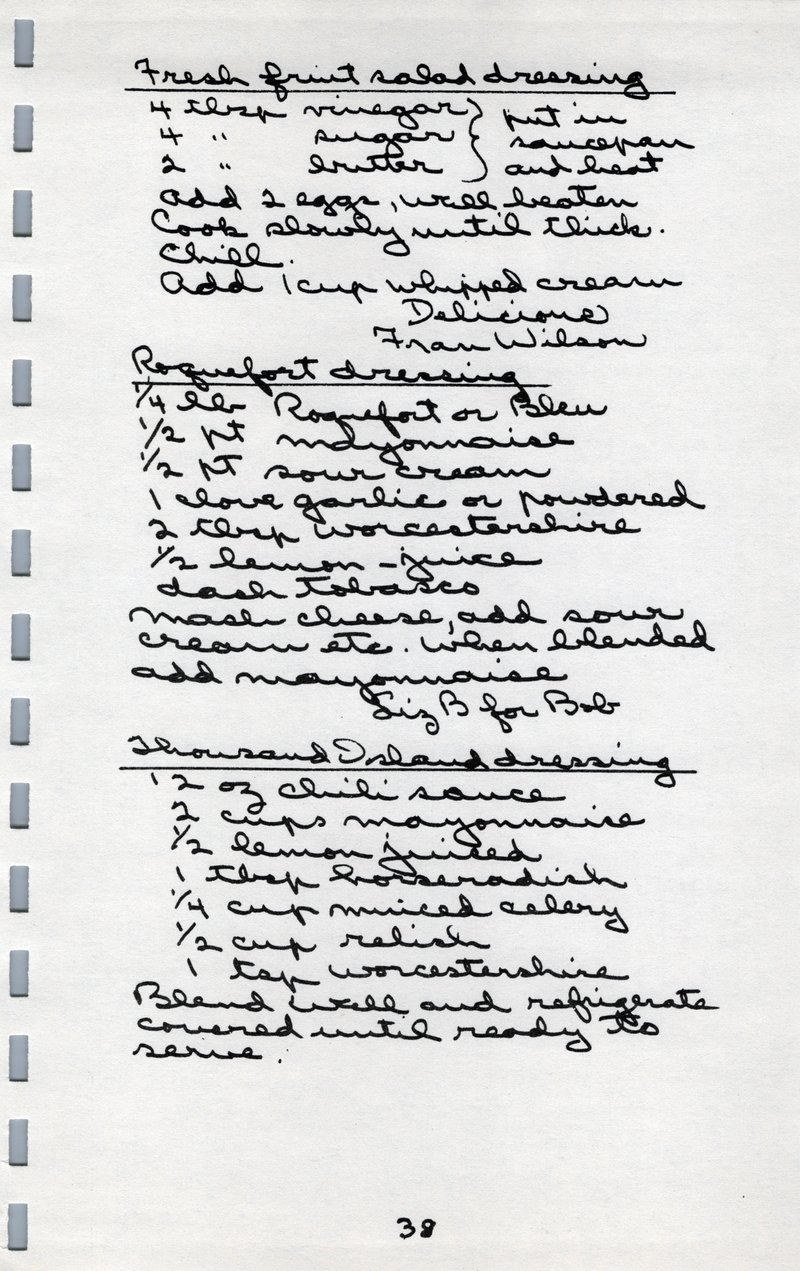 Fresh fruit salad dressing
4 tbsp vinegar } put in
4 " sugar } saucepan
2 " butter } and heat
add 2 eggs, well beaten
Cook slowly until thick.
Chill.
Add 1 cup whipped cream
Delicious
Fran Wilson
Roquefort dressing
1/4 lb Roquefort or Bleu
1/2 pt mayonnaise
1/2 pt sour cream
1 clove garlic or powdered
2 tbsp worcestershire
1/2 lemon - juice
dash tobasco
Mash cheese, add sour
cream etc. When blended
add mayonnaise
Liz B for Bob
Thousand Island dressing
12 oz chili sauce
2 cups mayonnaise
1/2 lemon juiced
1 tbsp horseradish
1/4 cup minced celery
1/2 cup relish
1 tsp worcestershire
Blend well and refrigerate
covered until ready to
serve.
38